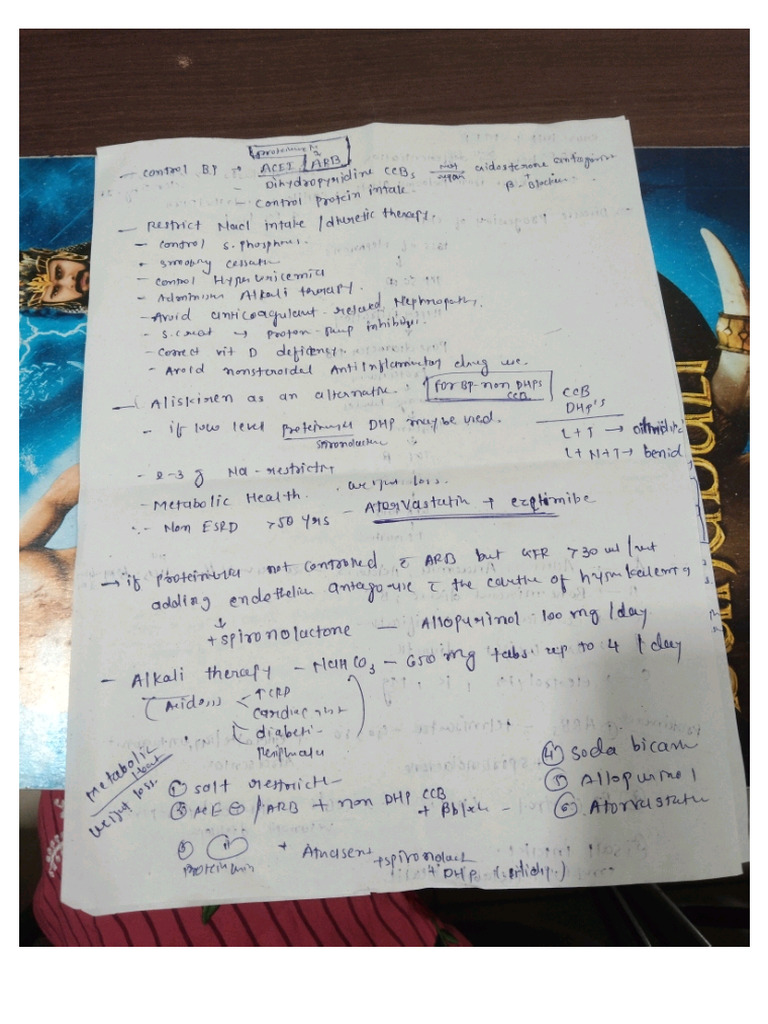 Proteinuria
- Control BP : ACEI / ARB
Dihydropyridine CCBs aldosterone antagonist
β-Blocker
- Control protein intake.
- Restrict Nacl intake / diuretic therapy.
- Control S. phosphrus.
• Smoking Cessatn
- Control Hyperuricemia
- Adminisn Alkali therapy.
- Avoid anticoagulant-related Nephropathy.
- S.creat → Proton-pump inhibitors.
- Correct vit D deficiency.
- Avoid nonsteroidal AntiInflammatory drug use.
- Aliskiren as an alternative. For BP-non DHPs CCB
CCB
DHP's
- if low level Proteinuria DHP may be used.
Spironolactone
L+T →
L+N+T → benid
- 2-3 g Na-restrictn
- Metabolic Health. weight loss.
Non ESRD >50 yrs - Atorvastatin + ezetimibe
→ if Proteinuria not controlled c ARB but GFR >30 ml/mt
adding endothelin antagonist c the caution of hyperkalemia
↓
+spironolactone - Allopurinol 100 mg/day
- Alkali therapy - NaHCO3 - 650 mg tabs. up to 4 / day
(Acidosis ↑CRP
cardiac
diabeti-
Metabolic
weight loss.
① Salt restrictn
② ACE ⊖ / ARB + non DHP CCB
+ Bblocker -
③ ⑪
Proteinuria
+ spironolact
DHP
④ Soda bicarb
⑤ Allopurinol
⑥ Atorvastatin